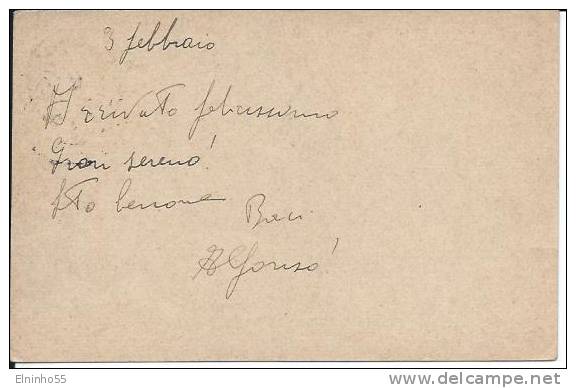 3 febbraio
Arrivato felicissimo
Gran sereno!
Sto benone
Baci
Alfonso
Elninho55
delcampe.net